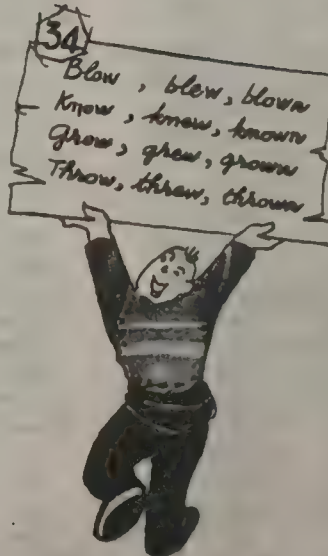 34
Blow, blew, blown
Know, knew, known
Grow, grew, grown
Throw, threw, thrown